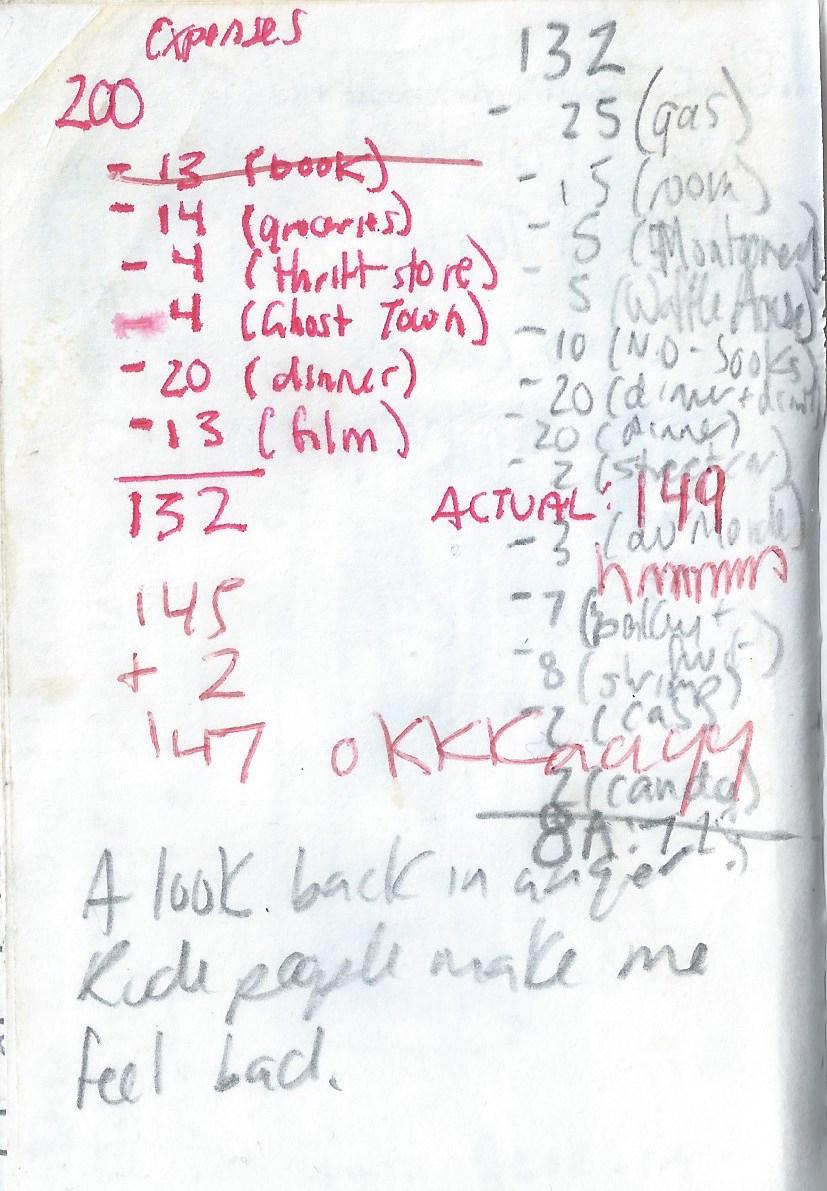 Expenses
200
- 13 (book)
- 14 (groceries)
- 4 (thrift store)
- 4 (Ghost Town)
- 20 (dinner)
- 13 (film)
132
145
+ 2
147
132
- 25 (gas)
- 15 (room)
- 5
- 5 (Waffle House)
- 10 (N.O-books)
- 20 (dinner +
- 20 (dinner)
- 2 (streetcar)
ACTUAL: 149
- 3 (du Monde)
hmmmm
- 7
- 8 (shrimp)
2
okkkaayy
2
8
A look back in anger
Rude people make me
feel bad.